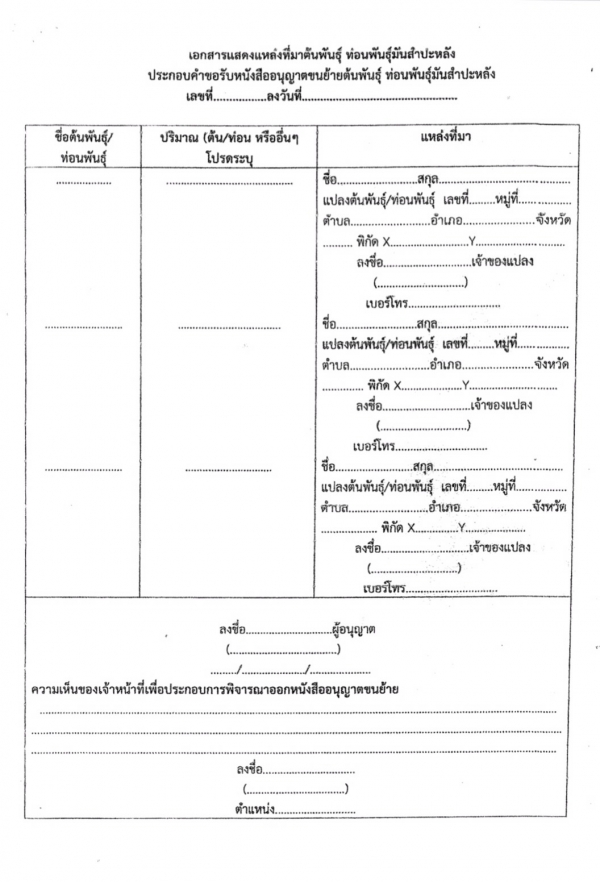 เอกสารแสดงแหล่งที่มาต้นพันธุ์ ท่อนพันธุ์มันสำปะหลัง
ประกอบคำขอรับหนังสืออนุญาตขนย้ายต้นพันธุ์ ท่อนพันธุ์มันสำปะหลัง
เลขที่..................ลงวันที่....................................................
ชื่อต้นพันธุ์/
ท่อนพันธุ์
ปริมาณ (ต้น/ท่อน หรืออื่นๆ
โปรดระบุ
แหล่งที่มา
................... ...............................
ชื่อ...........................สกุล............................................
แปลงต้นพันธุ์/ท่อนพันธุ์ เลขที่.........หมู่ที่..................
ตำบล...........................อำเภอ........................จังหวัด
.......... พิกัด X..........................Y..............................
ลงชื่อ..............................เจ้าของแปลง
(.............................)
เบอร์โทร...............................
.......................... ..................................
ชื่อ...........................สกุล............................................
แปลงต้นพันธุ์/ท่อนพันธุ์ เลขที่.........หมู่ที่..................
ตำบล...........................อำเภอ........................จังหวัด
.............. พิกัด X.....................Y..............................
ลงชื่อ..............................เจ้าของแปลง
(.............................)
เบอร์โทร...............................
.......................... .............................
ชื่อ..........................สกุล............................................
แปลงต้นพันธุ์/ท่อนพันธุ์ เลขที่.........หมู่ที่.................
ตำบล...........................อำเภอ........................จังหวัด
................... พิกัด X..............Y....................
ลงชื่อ..............................เจ้าของแปลง
(.............................)
เบอร์โทร...............................
ลงชื่อ.............................ผู้อนุญาต
(....................................)
........./...................../.....................
ความเห็นของเจ้าหน้าที่เพื่อประกอบการพิจารณาออกหนังสืออนุญาตขนย้าย
................................................................................
................................................................................
................................................................................
ลงชื่อ...............................
(.................................)
ตำแหน่ง...........................